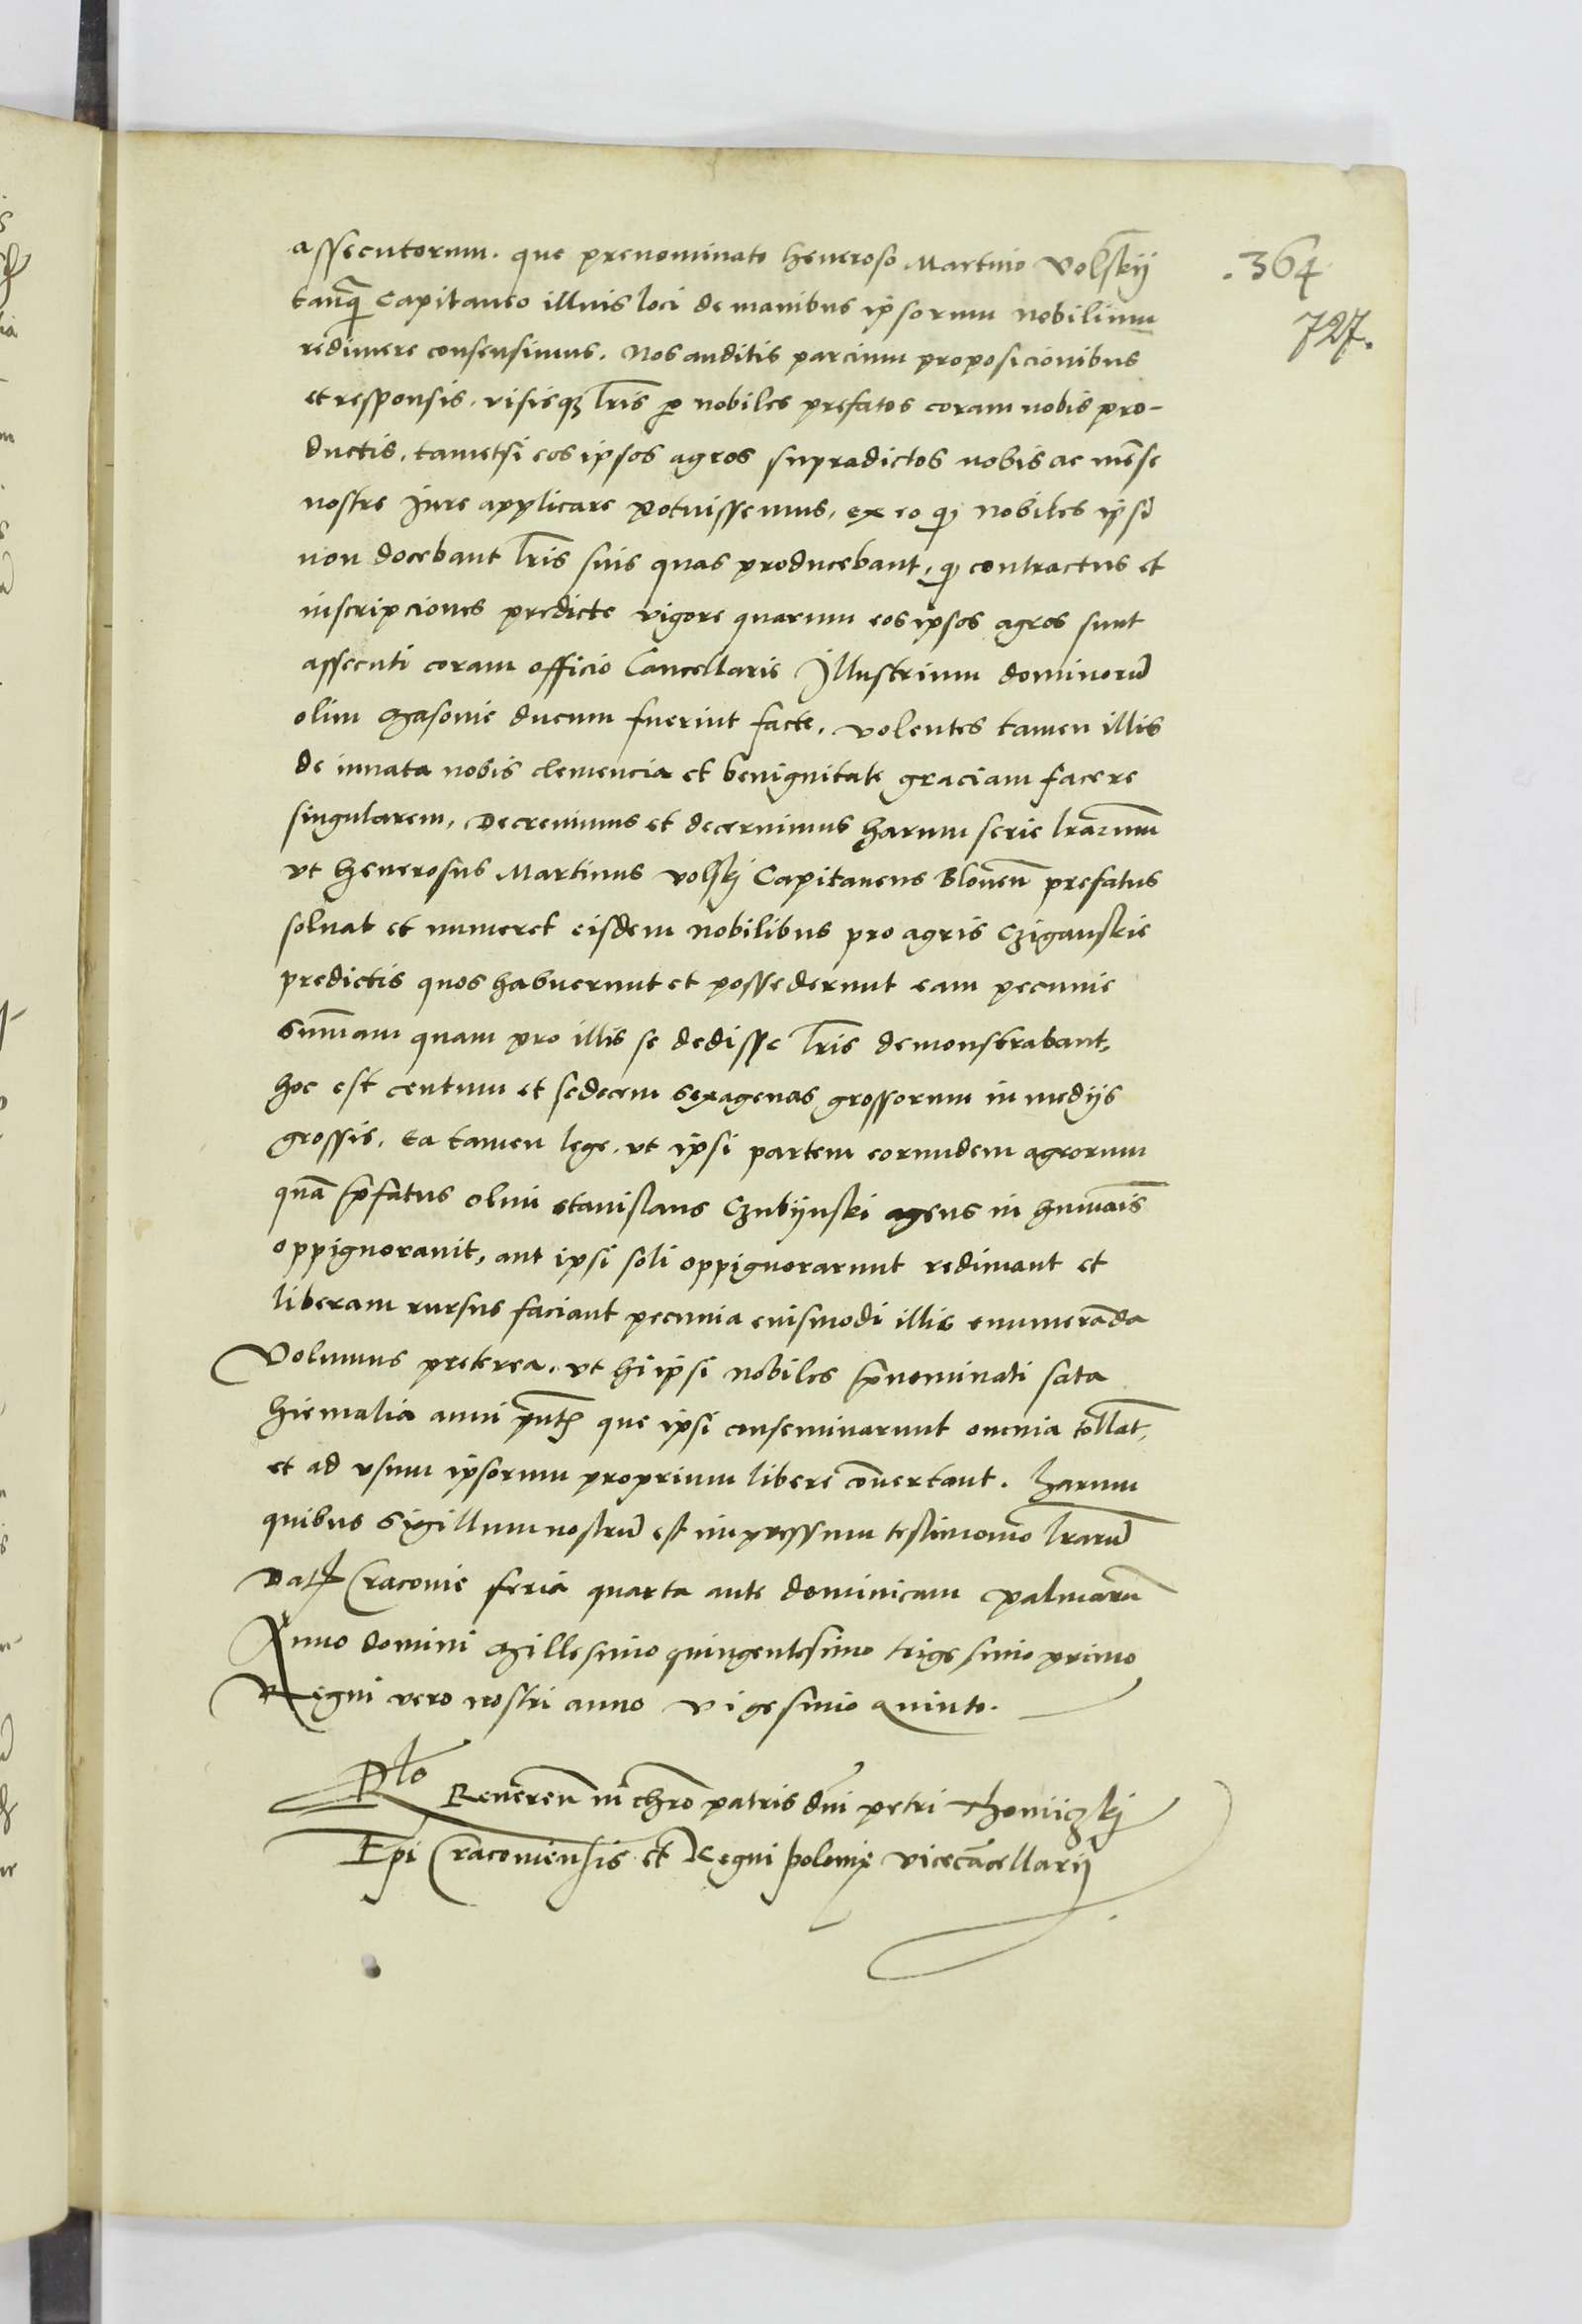 assecutorum. que prenominato Generoso Martino Volskij
.364
tanq̃ Capitaneo illius loci de manibus ipsorum nobilium
727.
redimere consensimus. Nos auditis parcium proposicionibus
et responsis. visisq; l̃ris p nobiles prefatos coram nobis pro-
ductis. tametsi eos ipsos agros supradictos nobis ac mẽse
nostre Jure applicare potuissemus. ex eo q nobiles ipsi
non docebant l̃ris suis quas producebant, q contractus et
inscripciones predicte vigore quarum eos ipsos agros sunt
assecuti coram officio Cancellarie Illustrium dominorũ
olim Masovie ducum fuerint facte. volentes tamen illis
de innata nobis clemencia et benignitate graciam facere
singularem. Decrevimus et decernimus harum serie l̃rarum
vt Generosus Martinus Volskj Capitaneus Bloneñ prefatus
solvat et numeret eisdem nobilibus pro agris Cziganskie
predictis quos habuerunt et possederunt eam pecunie
sum̃am quam pro illis se dedisse l̃ris demonstrabant,
hoc est centum et sedecem sexagenas grossorum in medijs
grossis. Ea tamen lege. vt ipsi partem eorumdem agrorum
quã p̃fatus olim Stanislaus Czubijnski agens in humãis
oppignoravit, aut ipsi soli oppignorarunt redimant et
liberam rursus faciant pecunia eiusmodi illis enumerãda
Volumus preterea. vt hi ipsi nobiles p̃nominati sata
hiemalia anni p̃ntis que ipsi conseminarunt omnia tollãt,
et ad vsum ipsorum proprium libere cõvertant. harum
quibus Sigillum nostrũ est impressum testimonio l̃rarũ
Dat Cracovie feria quarta ante dominicam palmarũ
Anno domini Millesimo quingentesimo trigesimo primo
Regni vero nostri anno vigesimo quinto.
Rlo Revereñ in chr̃o patris dñi petri Thomiczkj
Ep̃i Cracoviensis et Regni polonie vicecãcellarij